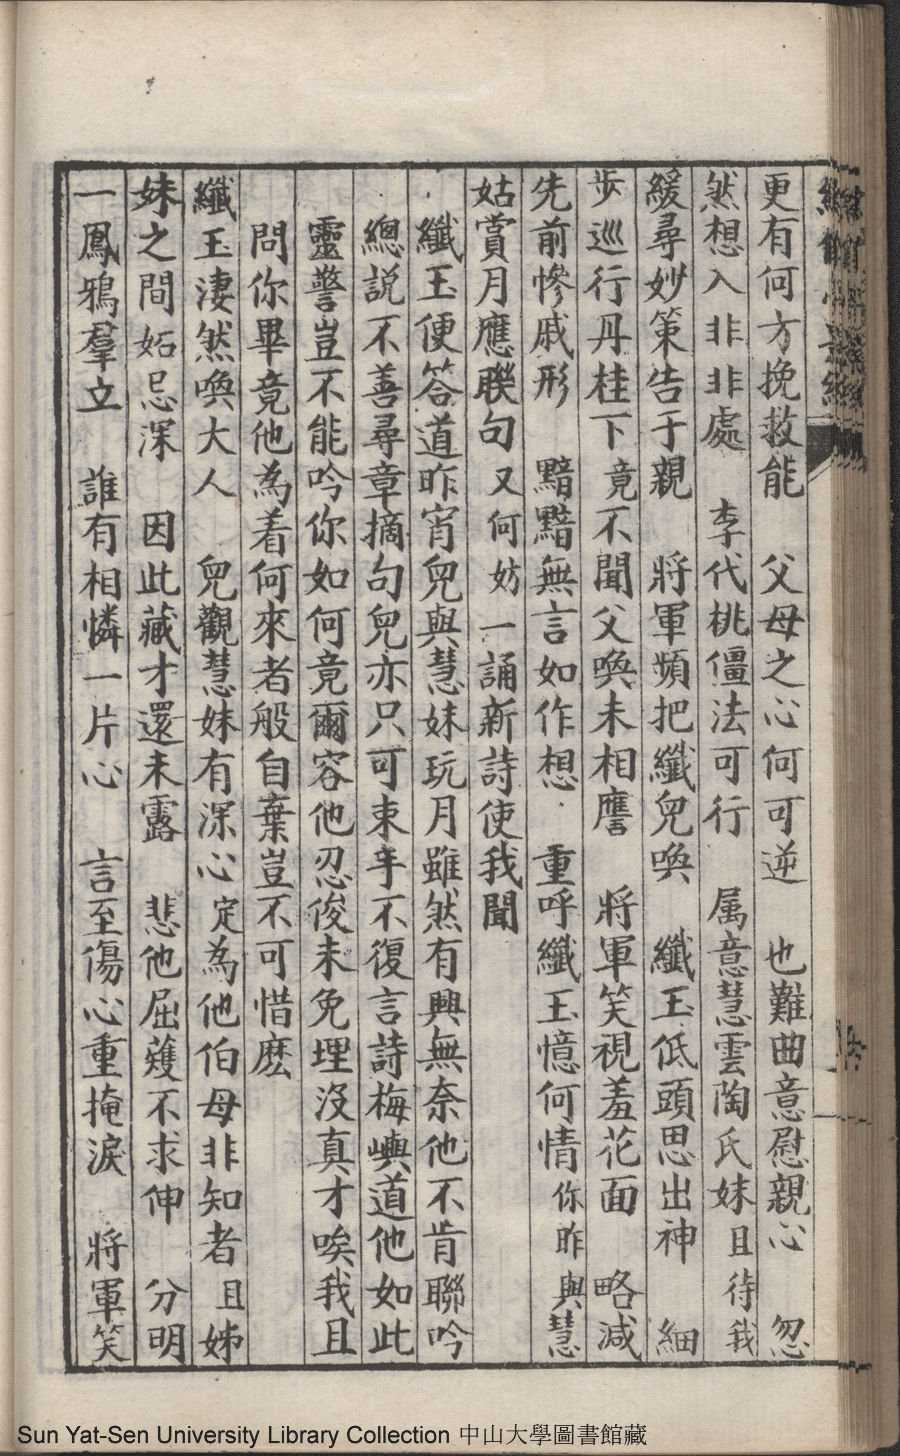 更有何方挽救能　父母之心何可逆　也難曲意慰親心　忽
然想入非非處　李代桃僵法可行　属意慧雲陶氏妹且待我
緩尋妙策告于親　將軍頻把纖兒喚　纖玉低頭思出神　細
步巡行丹桂下竟不聞父喚未相譍　將軍笑視羞花面　略減
先前慘戚形　黯黯無言如作想　重呼纖玉憶何情你昨與慧
姑賞月應聯句又何妨一誦新詩使我聞
纖玉便答道昨宵兒與慧妹玩月雖然有興無奈他不肯聯吟
總説不善尋章摘句兒亦只可束手不復言詩梅嶼道他如此
靈警豈不能吟你如何竟爾容他忍俊未免埋沒真才唉我且
問你畢竟他為着何來者般自棄豈不可惜麽
纖玉淒然喚大人　兒觀慧妹有深心定為他伯母非知者且姊
妹之間妬忌深　因此藏才還未露　悲他屈蠖不求伸　分明
一鳳鴉羣立　誰有相憐一片心　言至傷心重掩淚　將軍笑
Sun Yat-Sen University Library Collection 中山大學圖書館藏